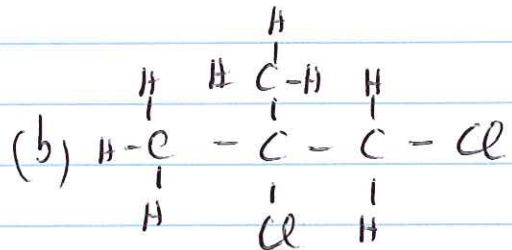 H
H H C-H H
(b) H-C - C - C - Cl
H Cl H